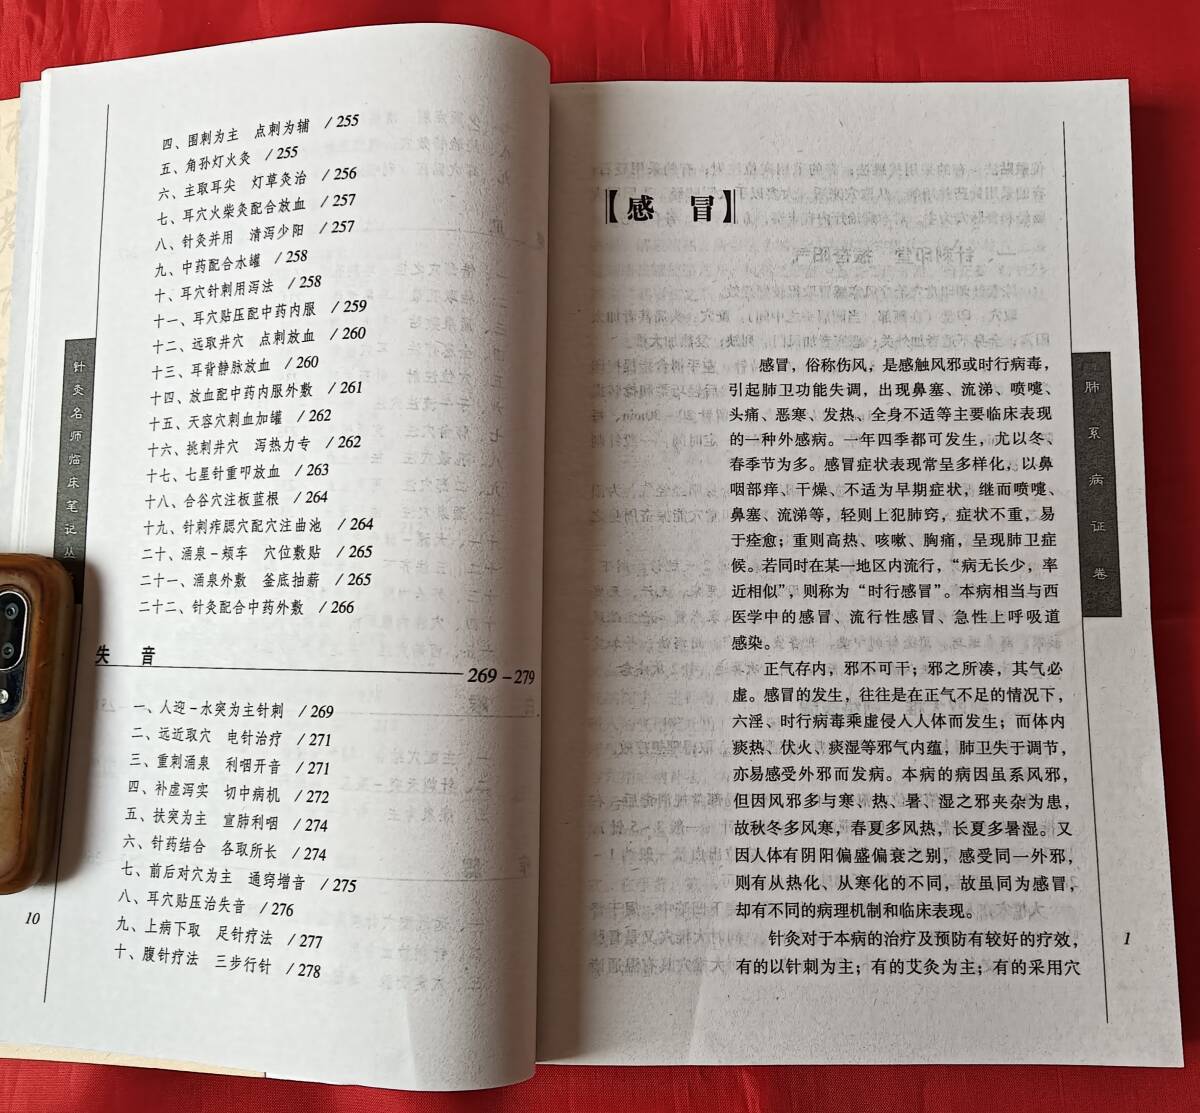 四、围刺为主　点刺为辅　/ 255
五、角孙灯火灸　/ 255
六、主取耳尖　灯草灸治　/ 256
七、耳穴火柴灸配合放血　/ 257
八、针灸并用　清泻少阳　/ 257
九、中药配合水罐　/ 258
十、耳穴针刺用泻法　/ 258
十一、耳穴贴压配中药内服　/ 259
十二、远取井穴　点刺放血　/ 260
十三、耳背静脉放血　/ 260
十四、放血配中药内服外敷　/ 261
十五、天容穴刺血加罐　/ 262
十六、挑刺井穴　泻热力专　/ 262
十七、七星针重叩放血　/ 263
十八、合谷穴注板蓝根　/ 264
十九、针刺痄腮穴配穴注曲池　/ 264
二十、涌泉－颊车　穴位敷贴　/ 265
二十一、涌泉外敷　釜底抽薪　/ 265
二十二、针灸配合中药外敷　/ 266
失　音
269－279
一、人迎－水突为主针刺　/ 269
二、远近取穴　电针治疗　/ 271
三、重刺涌泉　利咽开音　/ 271
四、补虚泻实　切中病机　/ 272
五、扶突为主　宣肺利咽　/ 274
六、针药结合　各取所长　/ 274
七、前后对穴为主　通窍增音　/ 275
八、耳穴贴压治失音　/ 276
九、上病下取　足针疗法　/ 277
十、腹针疗法　三步行针　/ 278
针灸名师临床笔记丛
10
【感　冒】
感冒，俗称伤风，是感触风邪或时行病毒，
引起肺卫功能失调，出现鼻塞、流涕、喷嚏、
头痛、恶寒、发热、全身不适等主要临床表现
的一种外感病。一年四季都可发生，尤以冬、
春季节为多。感冒症状表现常呈多样化，以鼻
咽部痒、干燥、不适为早期症状，继而喷嚏、
鼻塞、流涕等，轻则上犯肺窍，症状不重，易
于痊愈；重则高热、咳嗽、胸痛，呈现肺卫症
候。若同时在某一地区内流行，“病无长少，率
近相似”，则称为“时行感冒”。本病相当与西
医学中的感冒、流行性感冒、急性上呼吸道
感染。
正气存内，邪不可干；邪之所凑，其气必
虚。感冒的发生，往往是在正气不足的情况下，
六淫、时行病毒乘虚侵入人体而发生；而体内
痰热、伏火、痰湿等邪气内蕴，肺卫失于调节，
亦易感受外邪而发病。本病的病因虽系风邪，
但因风邪多与寒、热、暑、湿之邪夹杂为患，
故秋冬多风寒，春夏多风热，长夏多暑湿。又
因人体有阴阳偏盛偏衰之别，感受同一外邪，
则有从热化、从寒化的不同，故虽同为感冒，
却有不同的病理机制和临床表现。
针灸对于本病的治疗及预防有较好的疗效，
有的以针刺为主；有的艾灸为主；有的采用穴
肺系病证卷
1